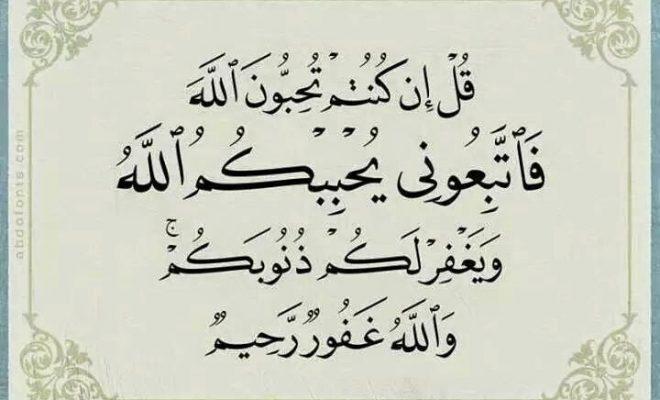 قُلْ إِن كُنتُمْ تُحِبُّونَ ٱللَّهَ
فَٱتَّبِعُونِى يُحْبِبْكُمُ ٱللَّهُ
وَيَغْفِرْ لَكُمْ ذُنُوبَكُمْ ۚ
وَٱللَّهُ غَفُورٌ رَّحِيمٌ
abdofonts.com